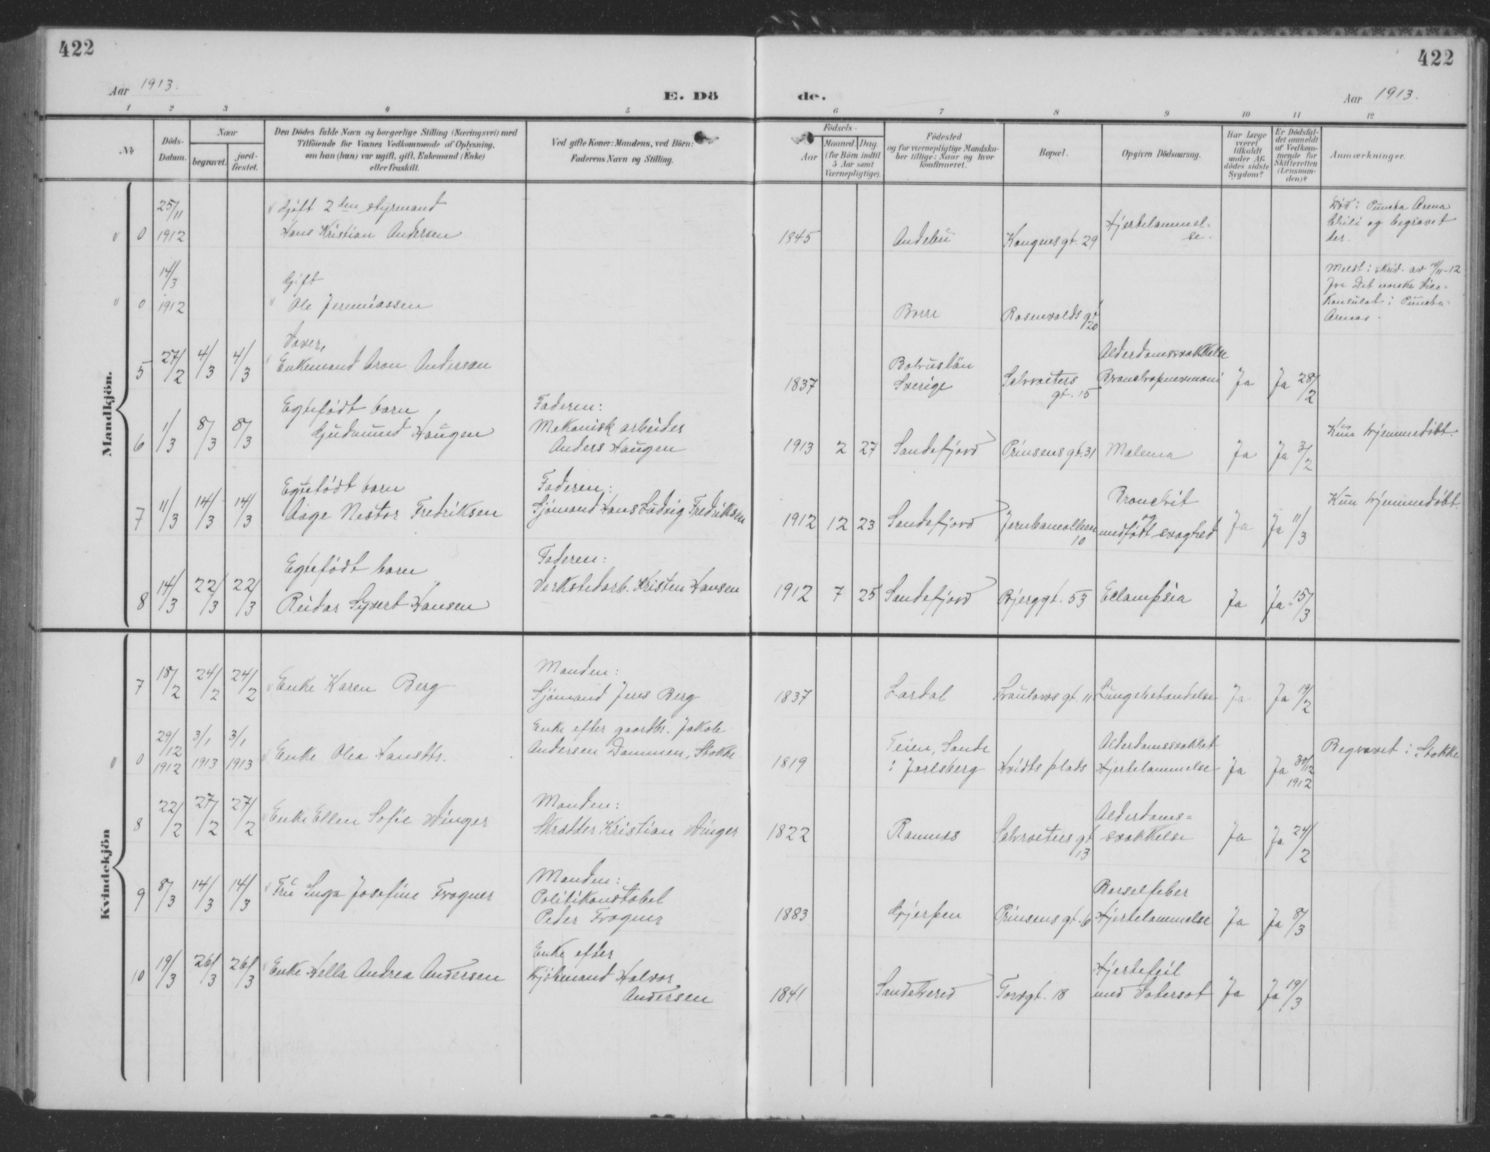 422
422
Aar 1913.
E. Dö
de.
Aar 1913.
1 2 3 4 5 6 7 8 9 10 11 12
No.
Döds-
Datum.
Naar
begravet.
jord-
fæstet.
Den Dödes fulde Navn og borgerlige Stilling (Næringsvei) med
Tilföiende for Voxnes Vedkommende af Oplysning,
om han (hun) var ugift, gift, Enkemand (Enke)
eller fraskilt.
Ved gifte Koner: Mandens, ved Börn:
Faderens Navn og Stilling.
Födsels-
Aar
Maaned. Dag.
(for Börn indtil
5 Aar samt
Værnepligtige).
Födested
og for værnepligtige Mandska-
ber tillige: Naar og hvor
konfirmeret.
Bopæl.
Opgiven Dödsaarsag.
Har Læge
været
tilkaldt
under Af-
dödes sidste
Sygdom?
Er Dödsfal-
det anmeldt
af Vedkom-
mende for
Skifteretten
(Lensman-
den)?
Anmærkninger.
Mandkjön.
0 25/11 1912 Gift 2den styrmand
Hans Kristian Andersen
1845 Andebu Kongensgt. 29 Hjertelammel-
se.
Död i Punta Arena
Chili og begravet
der.
0 14/3 1912 Gift
Ole Jeremiassen
Borre Rosenvolds gt
20
Meldt i skriv. av
fra Det norske Vice-
Konsulat i Punta-
Arenas.
5 27/2 4/3 4/3 Enkemand Aron Anderson
1837 Bohuslän
Sverige
Salvoeters
gt. 15
Alderdomssvakkelse
Bronchopneumoni
Ja Ja 28/2
6 1/3 8/3 8/3 Egtefödt barn
Gudmund Haugen
Faderen:
Mekanisk arbeider
Anders Haugen
1913 2 27 Sandefjord Prinsensgt. 31 Melena Ja Ja 3/2
Kun hjemmedöbt.
7 11/3 14/3 14/3 Egtefödt barn
Aage Nestor Fredriksen
Faderen:
Sjömand Hans Ludvig Fredriksen
1912 12 23 Sandefjord Jernbanealleen
10
Bronchit
og
medfödt svaghed
Ja Ja 11/3
Kun hjemmedöbt.
8 14/3 22/3 22/3 Egtefödt barn
Reidar Syvert Hansen
Faderen:
Verkstedarb. Kristen Hansen
1912 7 25 Sandefjord Bjerggt. 53 Eclampsia Ja Ja 15/3
Kvindekjön
7 18/2 24/2 24/2 Enke Karen Berg
Manden:
Sjömand Jens Berg
1837 Lardal gt 11 Lungebetændelse Ja Ja 19/2
0 29/12 1912 3/1 1913 3/1 1913 Enke Olea Hansdtr.
Enke efter gaardbr. Jakob
Andersen Dammen, Stokke
1819 Teien, Sande
i Jarlsberg
Hvidts plads
Alderdomssvakhet
Hjertelammelse
Ja Ja 30/12
1912
Begravet i Stokke
8 22/2 27/2 27/2 Enke Ellen Sofie Winger
Manden:
Skrædder Kristian Winger
1822 Ramnes Salvoeters gt
13
Alderdoms-
svakkelse
Ja Ja 24/2
9 8/3 14/3 14/3 Fru Inga Josefine Frogner
Manden:
Politikonstabel
Peder Frogner
1883 Gjerpen Prinsens gt. 6
Barselfeber
Hjertelammelse
Ja Ja 8/3
10 19/3 26/3 26/3 Enke Hella Andrea Andersen
Enke efter
Kjöbmand Halvor
Andersen
1841 Sandeherred Torvgt. 18
Hjertefeil
med Vatersot
Ja Ja 19/3